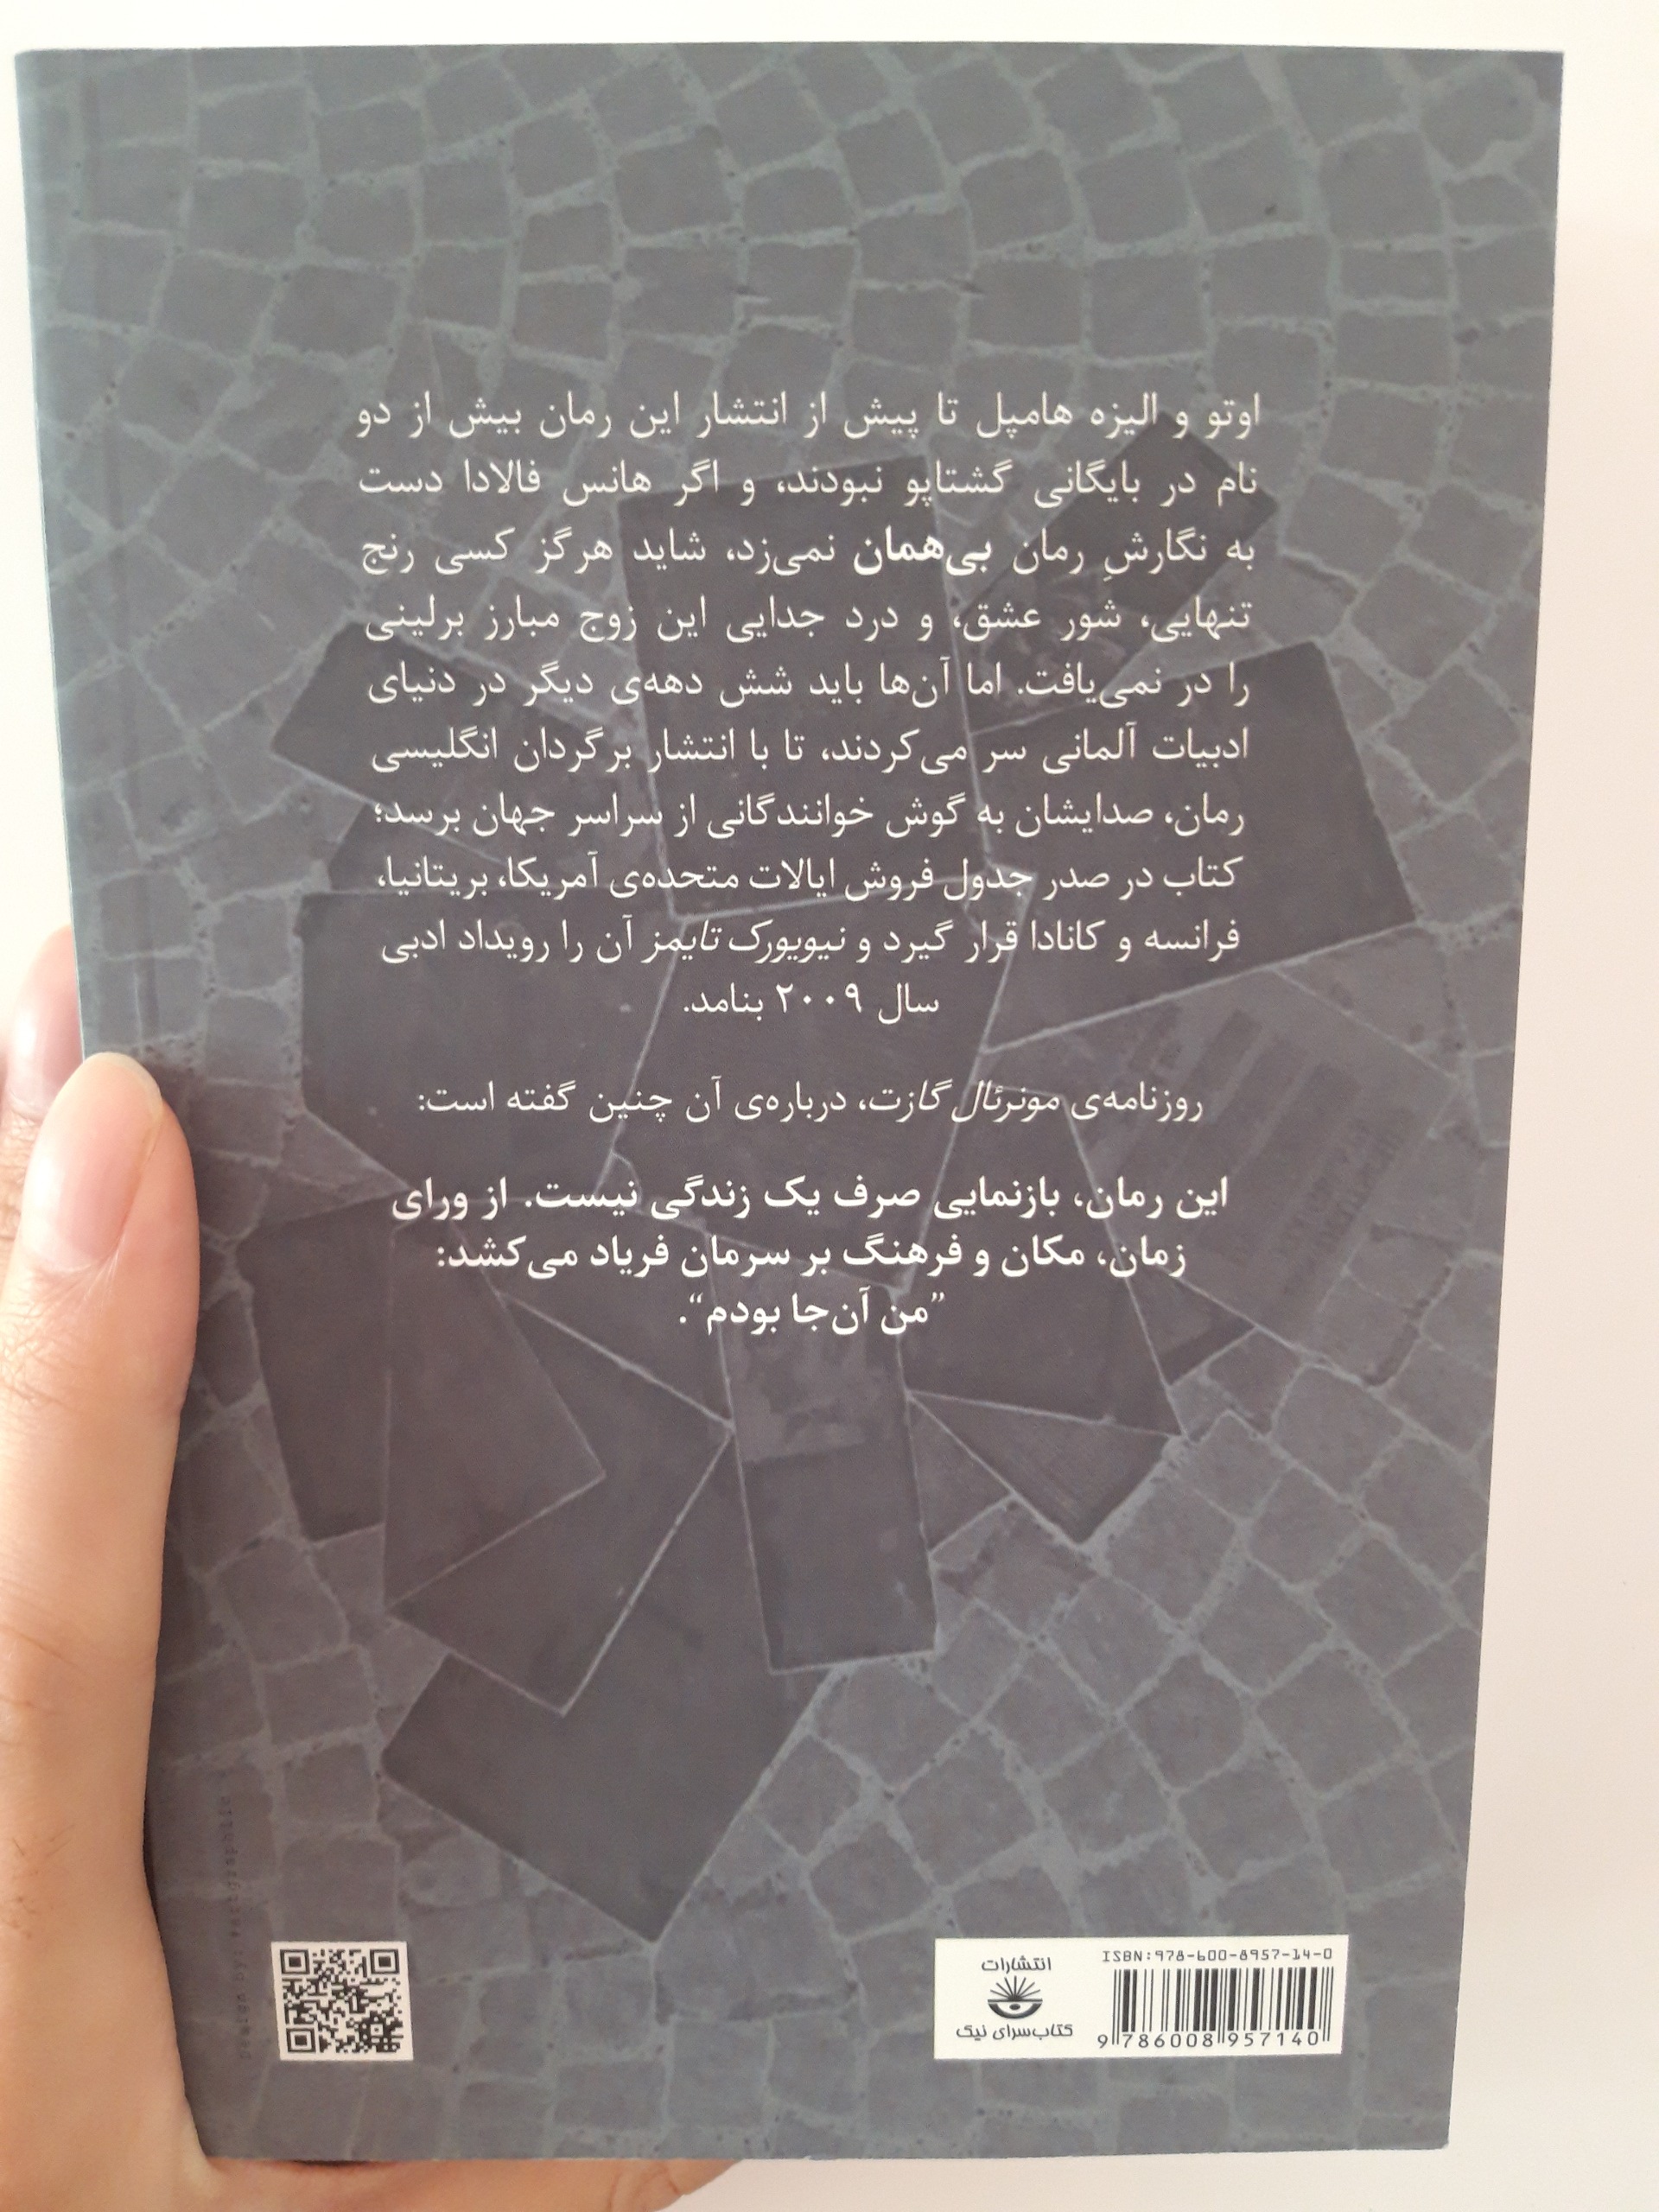 اوتو و الیزه هامپل تا پیش از انتشار این رمان بیش از دو
نام در بایگانی گشتاپو نبودند، و اگر هانس فالادا دست
به نگارشِ رمان بی‌همان نمی‌زد، شاید هرگز کسی رنج
تنهایی، شور عشق، و درد جدایی این زوج مبارز برلینی
را در نمی‌یافت. اما آن‌ها باید شش دهه‌ی دیگر در دنیای
ادبیات آلمانی سر می‌کردند، تا با انتشار برگردان انگلیسی
رمان، صدایشان به گوش خوانندگانی از سراسر جهان برسد؛
کتاب در صدر جدول فروش ایالات متحده‌ی آمریکا، بریتانیا،
فرانسه و کانادا قرار گیرد و نیویورک تایمز آن را رویداد ادبی
سال ۲۰۰۹ بنامد.
روزنامه‌ی مونرئال گازت، درباره‌ی آن چنین گفته است:
این رمان، بازنمایی صرف یک زندگی نیست. از ورای
زمان، مکان و فرهنگ بر سرمان فریاد می‌کشد:
”من آن‌جا بودم“.
ISBN:978-600-8957-14-0
9 786008 957140
انتشارات
کتاب‌سرای نیک